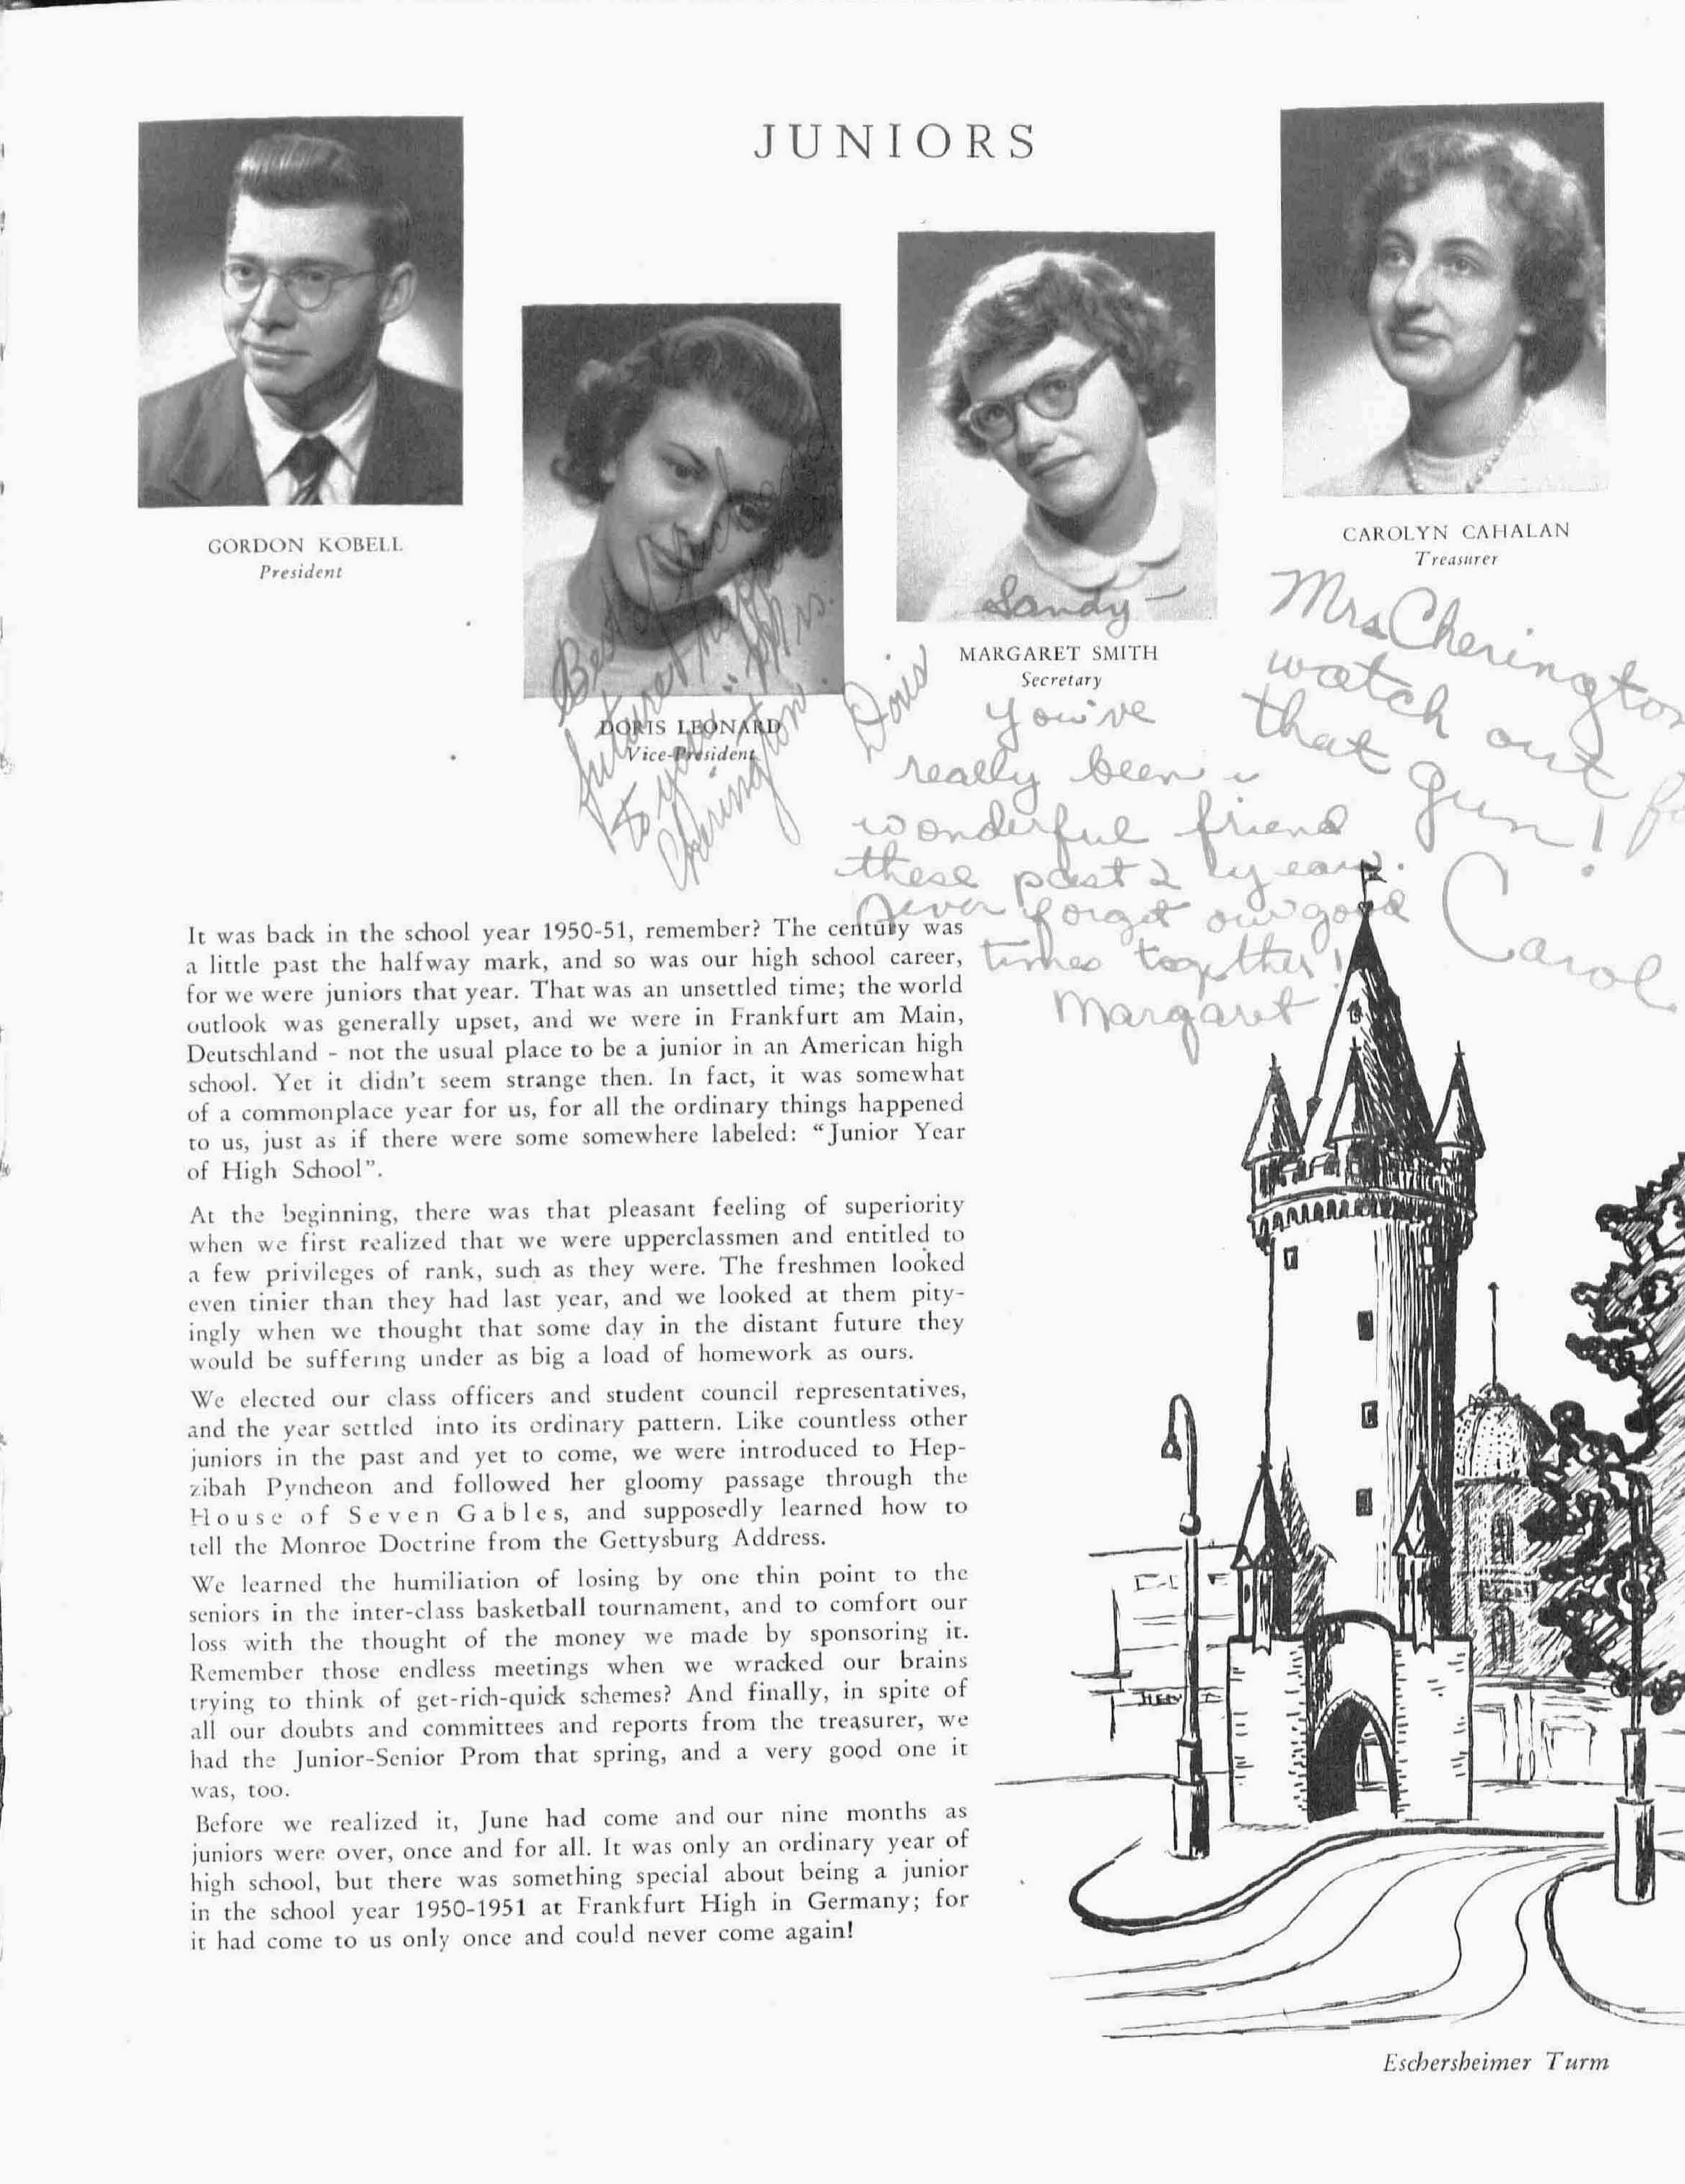 JUNIORS
GORDON KOBELL
President
DORIS LEONARD
Vice-President
MARGARET SMITH
Secretary
CAROLYN CAHALAN
Treasurer
Best of
future
to you
Mrs.
Cherington.
Doris
Sandy –
You've
really been a
wonderful friend
these past 2 years.
Never forget our good
times together!
Margaret
Mrs Cherington
watch out
that gun!
Carol
It was back in the school year 1950-51, remember? The century was
a little past the halfway mark, and so was our high school career,
for we were juniors that year. That was an unsettled time; the world
outlook was generally upset, and we were in Frankfurt am Main,
Deutschland - not the usual place to be a junior in an American high
school. Yet it didn't seem strange then. In fact, it was somewhat
of a commonplace year for us, for all the ordinary things happened
to us, just as if there were some somewhere labeled: “Junior Year
of High School”.
At the beginning, there was that pleasant feeling of superiority
when we first realized that we were upperclassmen and entitled to
a few privileges of rank, such as they were. The freshmen looked
even tinier than they had last year, and we looked at them pity-
ingly when we thought that some day in the distant future they
would be suffering under as big a load of homework as ours.
We elected our class officers and student council representatives,
and the year settled into its ordinary pattern. Like countless other
juniors in the past and yet to come, we were introduced to Hep-
zibah Pyncheon and followed her gloomy passage through the
House of Seven Gables, and supposedly learned how to
tell the Monroe Doctrine from the Gettysburg Address.
We learned the humiliation of losing by one thin point to the
seniors in the inter-class basketball tournament, and to comfort our
loss with the thought of the money we made by sponsoring it.
Remember those endless meetings when we wracked our brains
trying to think of get-rich-quick schemes? And finally, in spite of
all our doubts and committees and reports from the treasurer, we
had the Junior-Senior Prom that spring, and a very good one it
was, too.
Before we realized it, June had come and our nine months as
juniors were over, once and for all. It was only an ordinary year of
high school, but there was something special about being a junior
in the school year 1950-1951 at Frankfurt High in Germany; for
it had come to us only once and could never come again!
Eschersheimer Turm